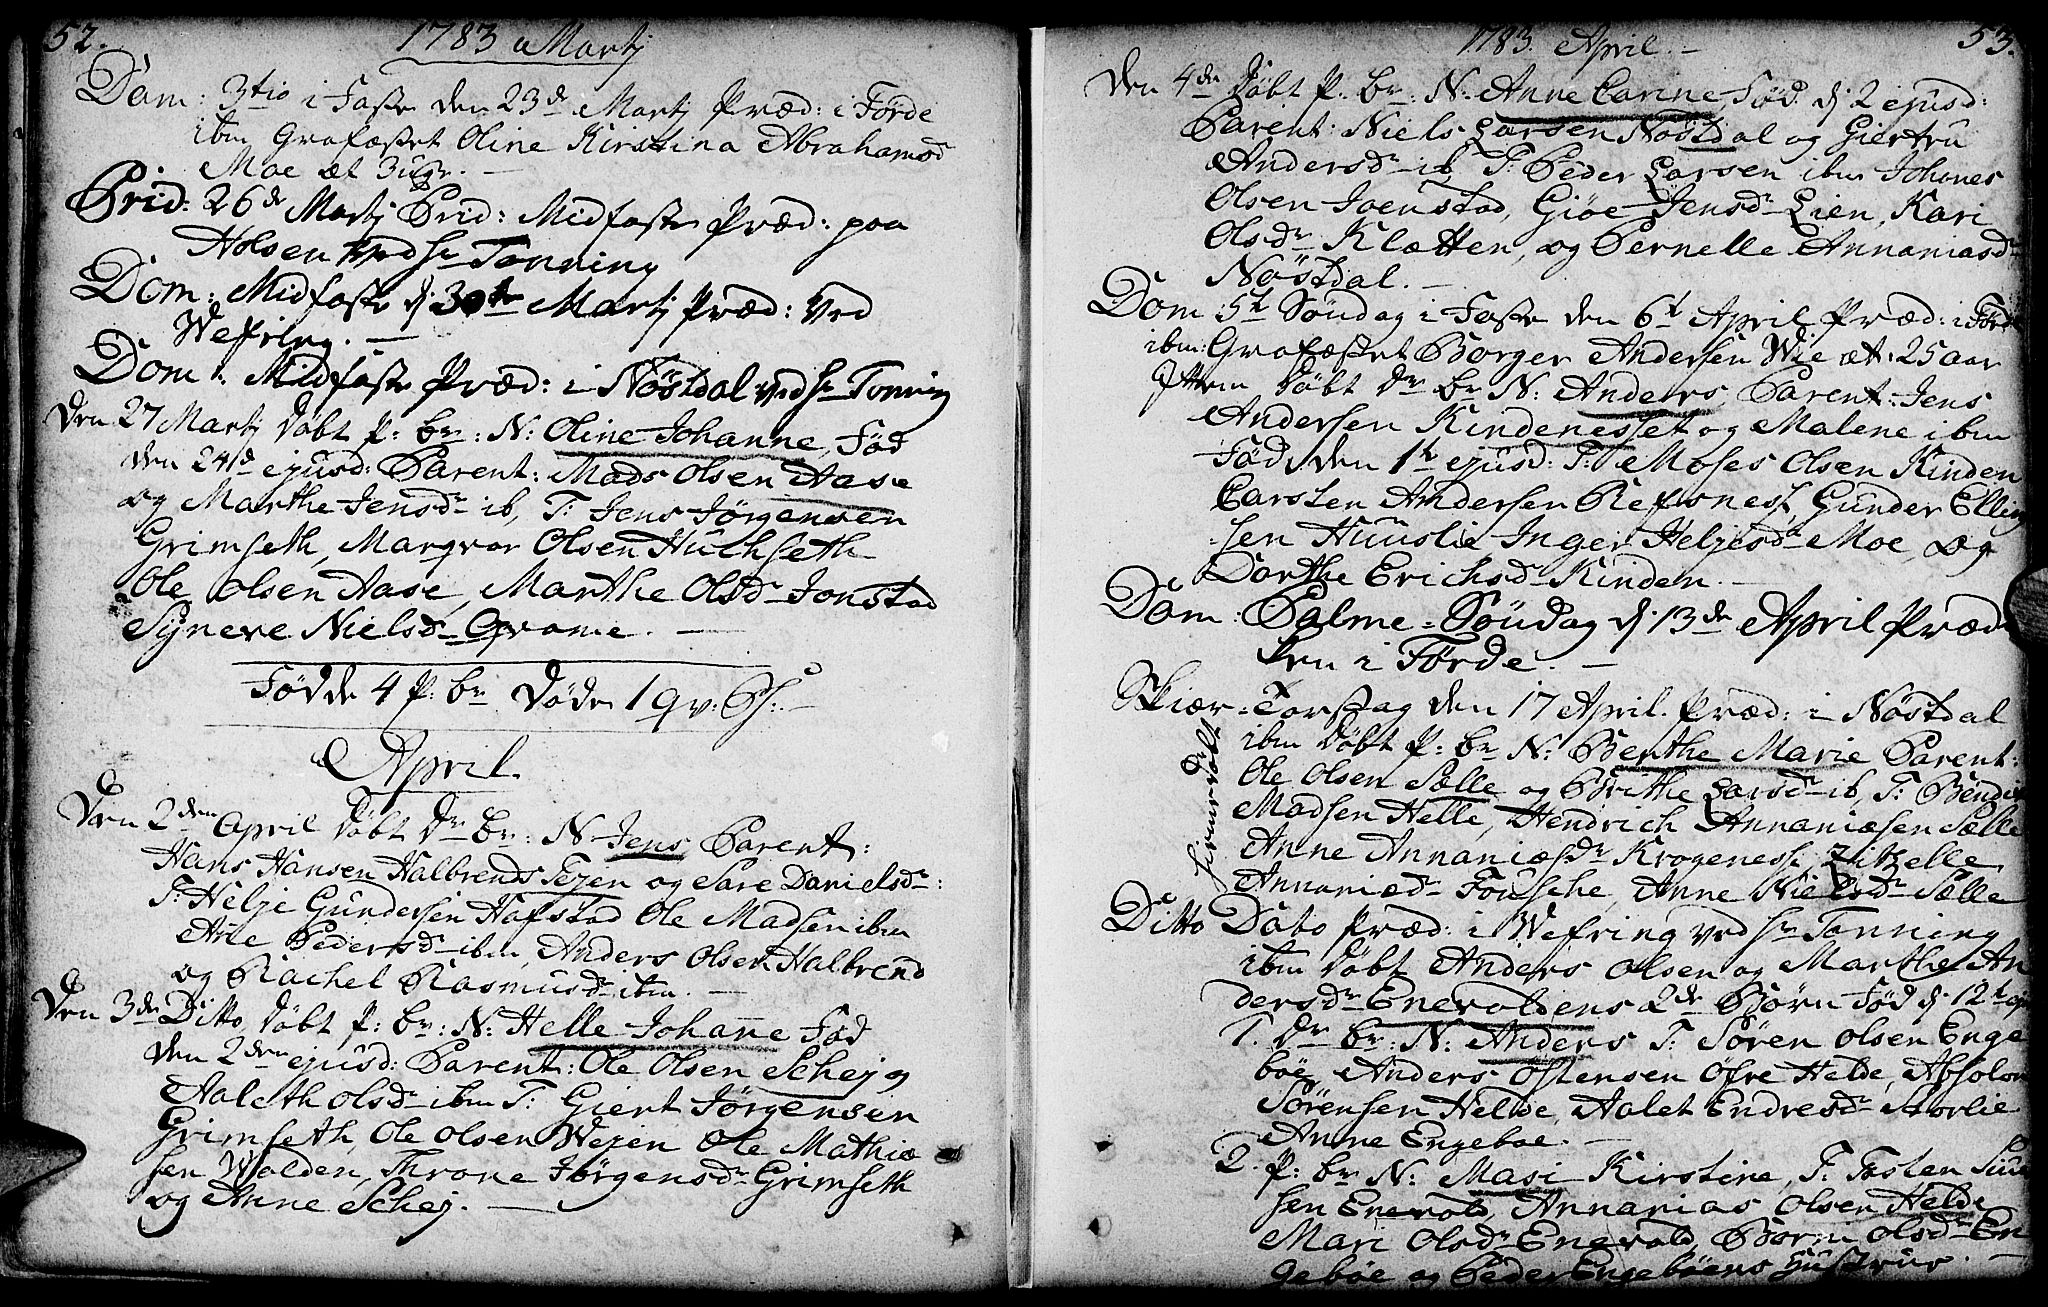 52.
1783 Martj
Dom: 3tio i Faste den 23de Martj Præd: i Førde
ibm Grafæstet Oline Kirstina Abrahamsd
Moe æt 3 ugr. —
Prid: 26de Martj Prid: Midfaste Præd: paa
Holsen ved Hr Tonning
Dom: Midfaste d: 30te Martj Præd: ved
Wefring. —
Dom: Midfaste Præd: i Nøstdal ved Hr Tonning
Den 27 Martj Døbt P: br: N: Oline Johanne, Fød
den 24de ejusd: Parent: Mads Olsen Aase
og Marthe Jensdr ib, T: Jens Jørgensen
Grimseth, Margvar Olsen Huchseth
Ole Olsen Aase, Marthe Olsdr Jonstad
Synneve Nielsdr Qvame. —
Fødde 4 P: br Døde 1 qv: P: —
April.
Den 2den April Døbt Dr br: N: Jens, Parent:
Hans Hansen Halbrends Tejen og Sare Danielsdr:
T: Helje Gundersen Hafstad Ole Madsen ibm
Ane Pedersdr ibm, Anders Olsen Halbrend
og Rachel Rasmusdr ibm. —
Den 3de Ditto, Døbt P: br: N: Helle Johanne Fød
den 2den ejusd: Parent: Ole Olsen Schej og
Aaleth Olsdr ibm T: Giert Jørgensen
Grimseth, Ole Olsen Wejen Ole Mathia
sen Wolden, Throne Jørgensdr Grimseth
og Anne Schej. —
1783. April. —
53.
Den 4de Døbt P. br: N. Anne Carine, Fød d: 2 ejusd:
Parent: Niels Larsen Nøstdal og Giertru
Andersdr ib, T: Peder Larsen ibm Johanes
Olsen Joenstad, Giøe Jensdr Lien, Kari
Olsdr Klætten, og Pernelle Annaniasdr
Nøstdal. —
Dom 5te Søndag i Faste den 6te April Præd: i Førde
ibm: Grafæstet Borger Andersen Wie æt: 25 aar
Ittem Døbt Dr br N: Anders, Parent: Jens
Andersen Kindenesset og Malene ibm
Fød den 1te ejusd: T: Moses Olsen Kinden
Carsten Andersen Refsnes, Gunder Elling
sen Huuslie Inger Heljesdr Moe, og
Dorthe Erichsdr Kinden. —
Dom: Palme-Søndag d: 13de April Præd
ken i Førde. —
Skiær-Torsdag den 17 April. Præd: i Nøstdal
ibm Døbt P: br N: Berthe Marie Parent:
Ole Olsen Sælle og Brithe Larsdr ib, T: Bendix
Madsen Helle, Hendrich Annaniæsen Sælle
Anne Annaniæsdr Krogenes, Zitzelle
Annaniædr Fousche, Anne Nielsdr Sælle
hiemedøbt
Ditto Dato Præd: i Wefring ved Hr Tonning
ibm Døbt Anders Olsen og Marthe An
dersdr Enevoldens 2de Børn Fød d: 12te
1. Dr br: N: Anders T: Søren Olsen Enge
bøe, Anders Østensen Øfre Helde, Absolon
Sørensen Helde, Aalet Endresdr Storlie
Anne Engeboe. —
2. P: br N: Masi Kirstine, T: Testen
sen Enevold, Annanias Olsen Helde
Mari Olsdr Enevold, Børni Olsdr En
gebøe og Peder Engebøens Hustrue. —